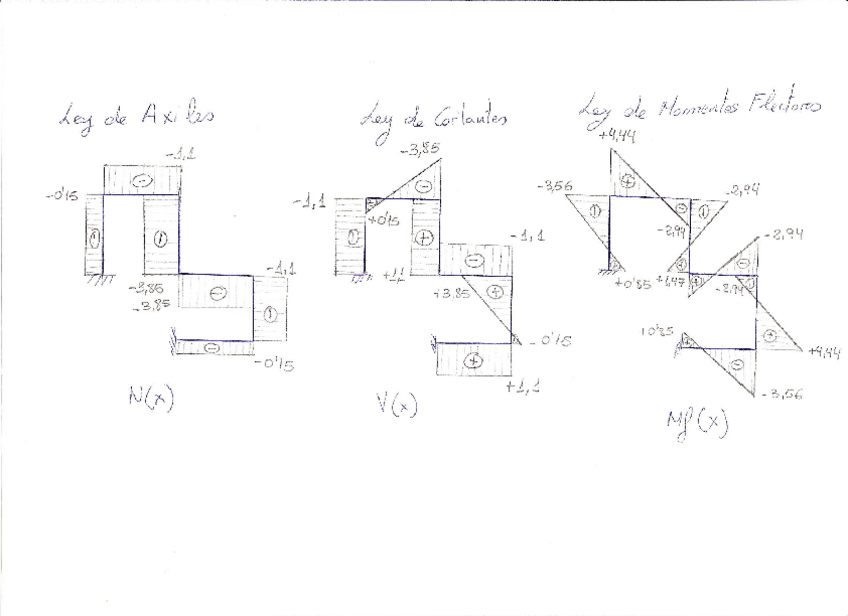 Ley de Axiles
-1,1
-0'15
-3,85
-3,85
-1,1
-0'15
N(x)
Ley de Cortantes
-3,85
-1,1
+0'15
+1,1
-1,1
+3,85
-0'15
+1,1
V(x)
Ley de Momentos Flectores
+4,44
-3,56
-2,94
-2,94
+0'85
+1,47
-2,94
-2,94
+4,44
-3,56
Mf(x)